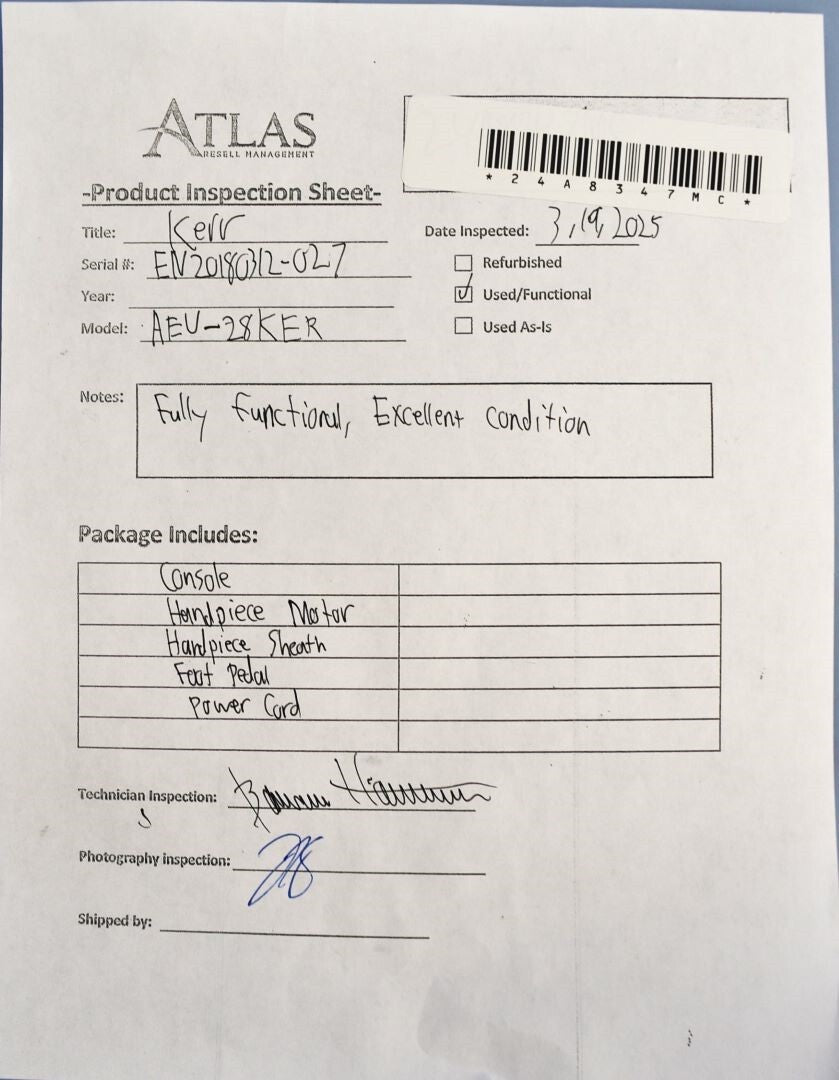 ATLAS
RESELL MANAGEMENT
* 2 4 A 8 3 4 7 M C *
-Product Inspection Sheet-
Title: Kerr
Date Inspected: 3,19,2025
Serial #: EN20180312-027
Refurbished
Year:
Used/Functional
Model: AEU-28KER
Used As-Is
Notes: Fully functional, Excellent condition
Package Includes:
Console
Handpiece Motor
Handpiece Sheath
Foot Pedal
Power Cord
Technician Inspection:
Photography inspection:
Shipped by: